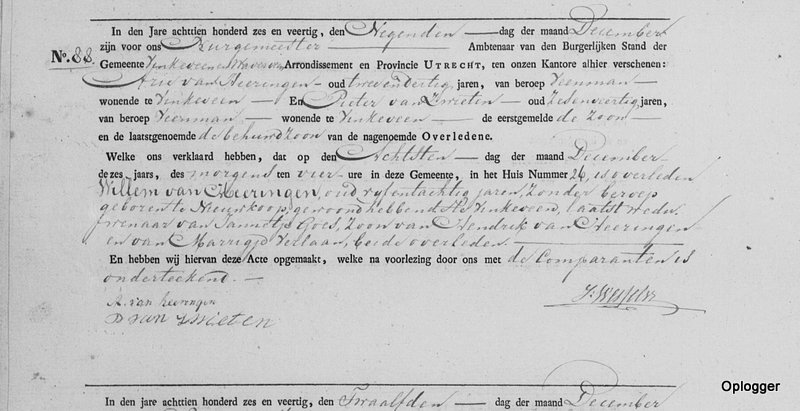 In den Jare achttien honderd zes en veertig, den Negenden dag der maand December
zijn voor ons Burgemeester Ambtenaar van den Burgerlijken Stand der
No. 88.
Gemeente Vinkeveen & Waverveen Arrondissement en Provincie UTRECHT, ten onzen Kantore alhier verschenen:
Arie van Heeringen oud twee endertig jaren, van beroep Veenman
wonende te Vinkeveen En Pieter van Zwieten oud Zesenveertig jaren,
van beroep Veenman wonende te Vinkeveen de eerstgemelde de Zoon
en de laatstgenoemde de behuwdzoon van de nagenoemde Overledene.
Welke ons verklaard hebben, dat op den Achtsten dag der maand December
dezes jaars, des morgens ten vier ure in deze Gemeente, in het Huis Nummer 26, is overleden
Willem van Heeringen, oud vyfentachtig jaren, zonder beroep
geboren te Nieuwkoop, gewoond hebbend te Vinkeveen, laatst wedu-
wenaar van Jannetje Goes, Zoon van Hendrik van Heeringen
en van Marrigje Verlaan, beide overleden.
En hebben wij hiervan deze Acte opgemaakt, welke na voorlezing door ons met de Comparanten is
onderteekend.
A. van heeringen
P van Zwieten
In den jare achttien honderd zes en veertig, den Twaalfden dag der maand December
Oplogger